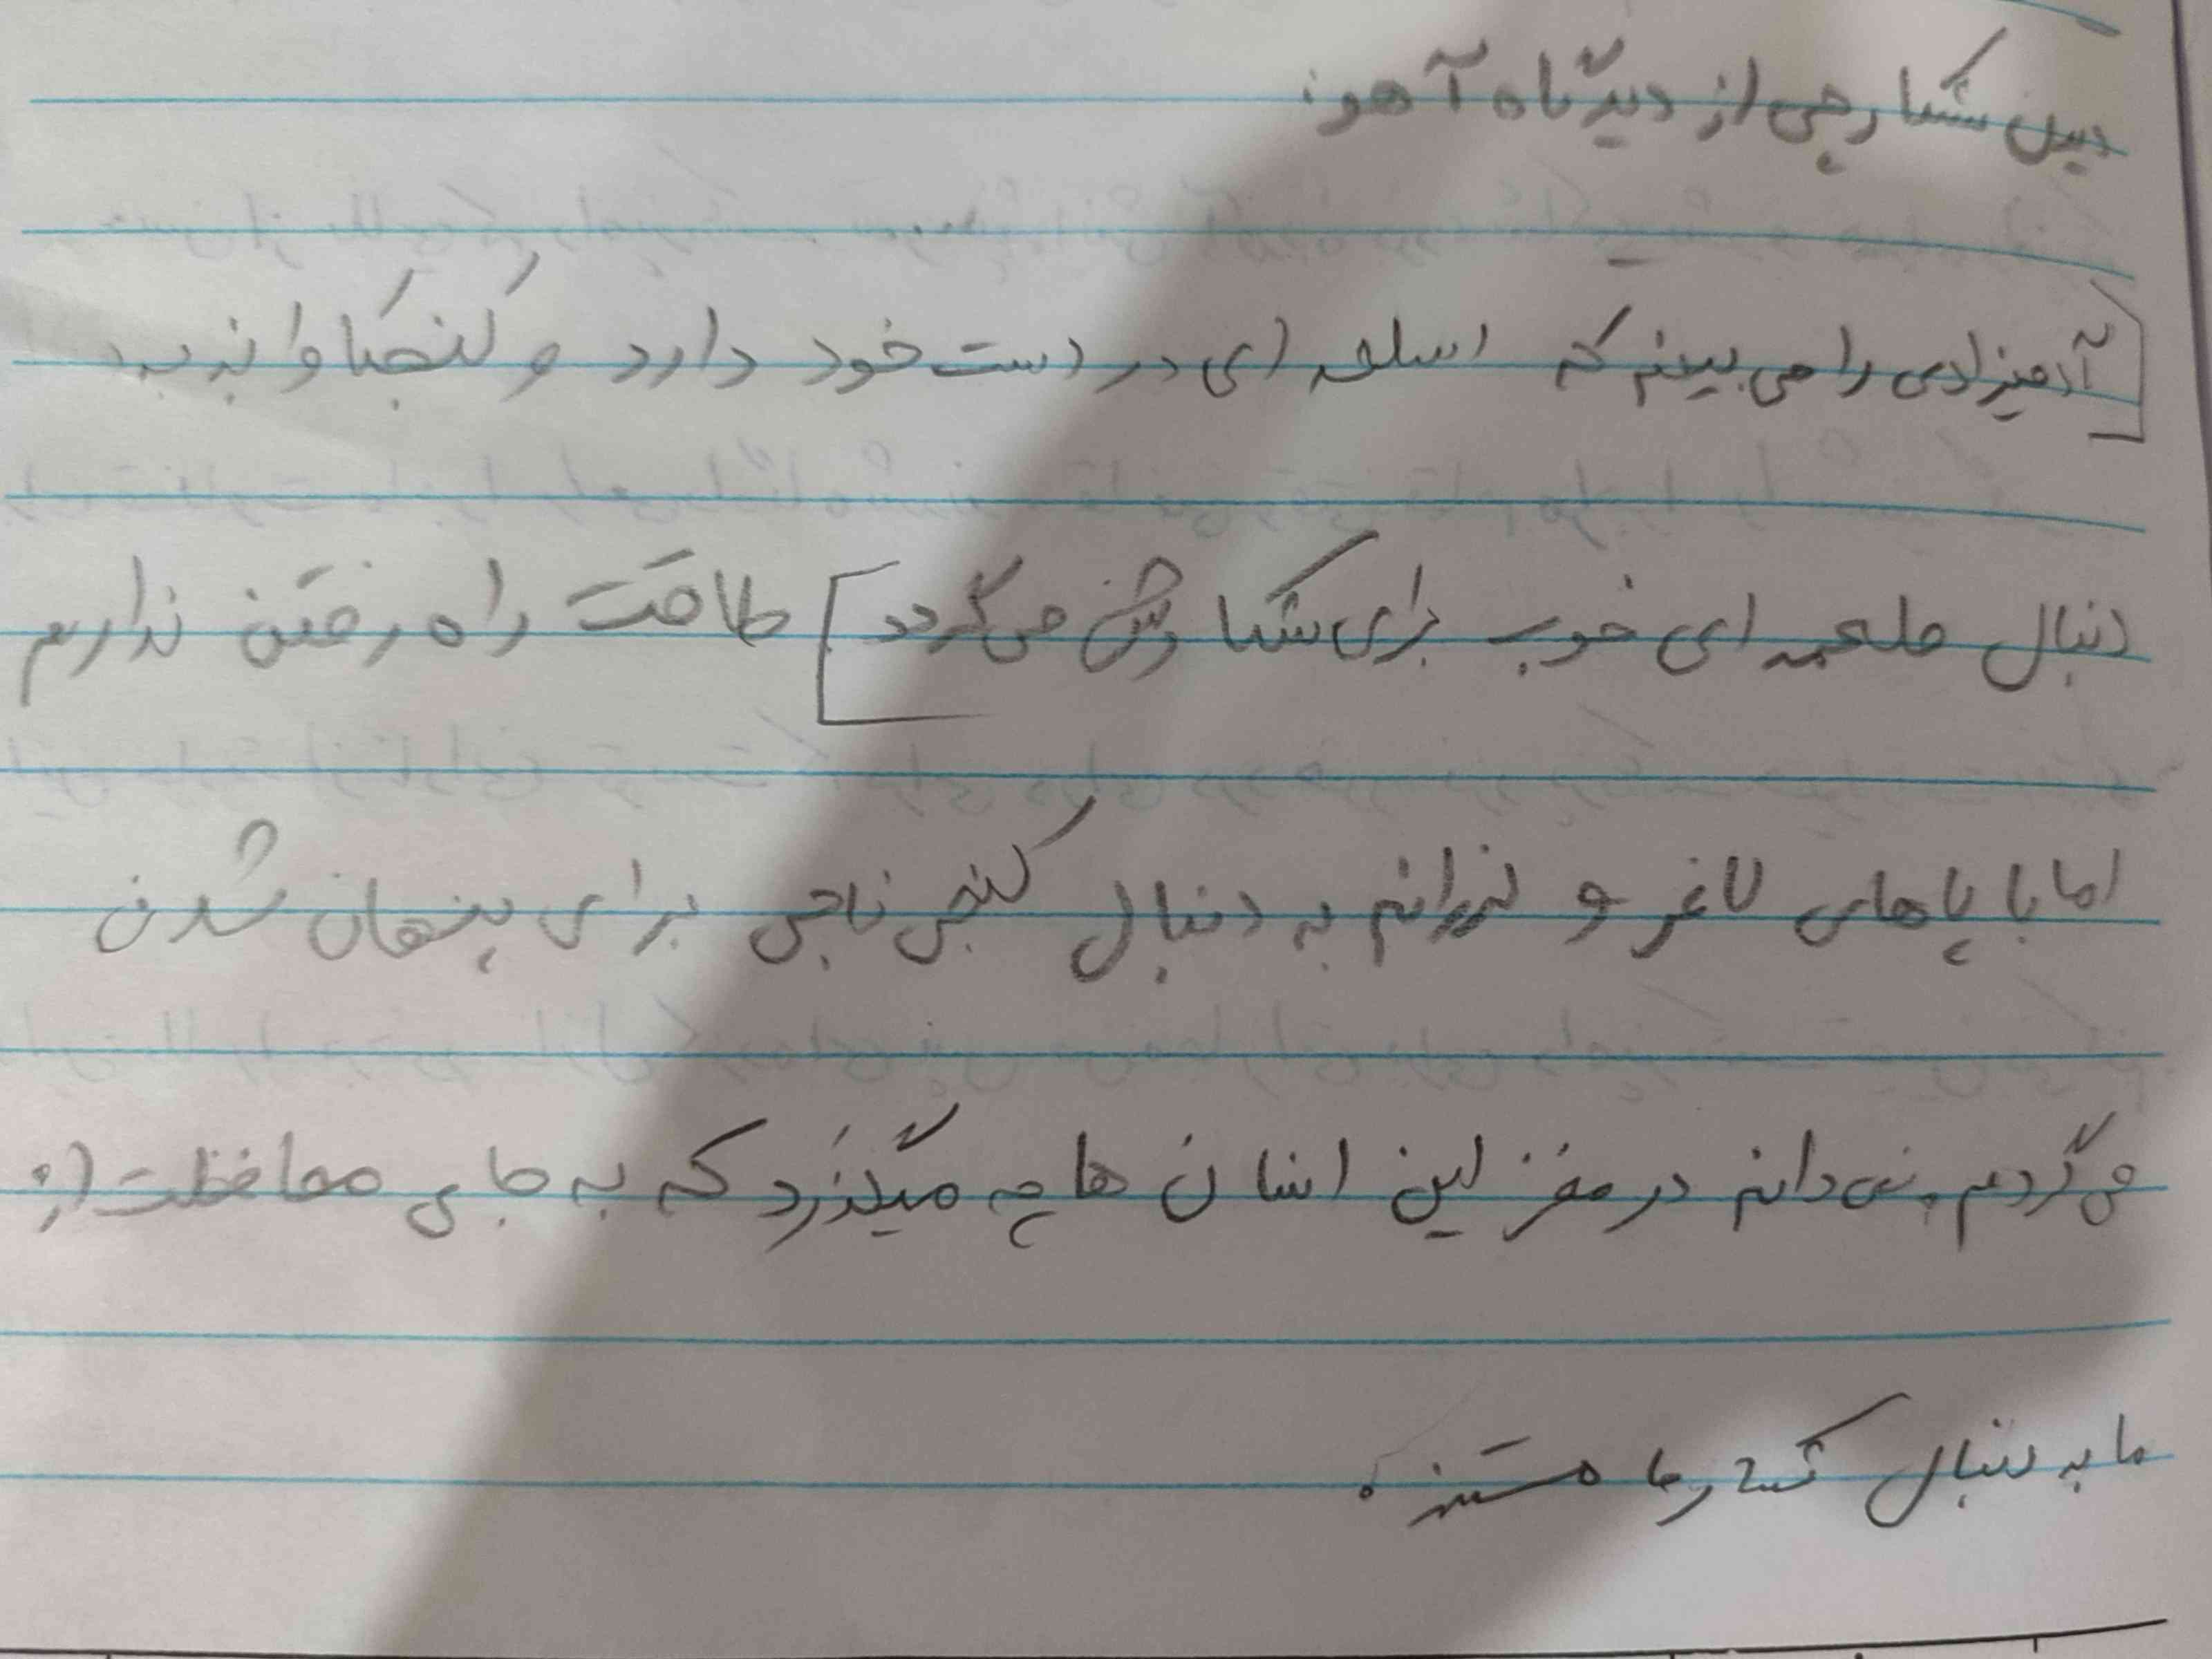 دیدن شکارچی از دیدگاه آهو:
[آدمیزادی را می بینم که اسلحه ای در دست خود دارد و کنجکاوانه به
دنبال طعمه ای خوب برای شکارش می گردد] طاقت راه رفتن ندارم
اما با پاهای لاغر و لرزانم به دنبال کنجی ناجی برای پنهان شدن
می گردم. نمی دانم در مغز این انسان ها چه میگذرد که به جای محافظت از
ما به دنبال کشتار ما هستند.